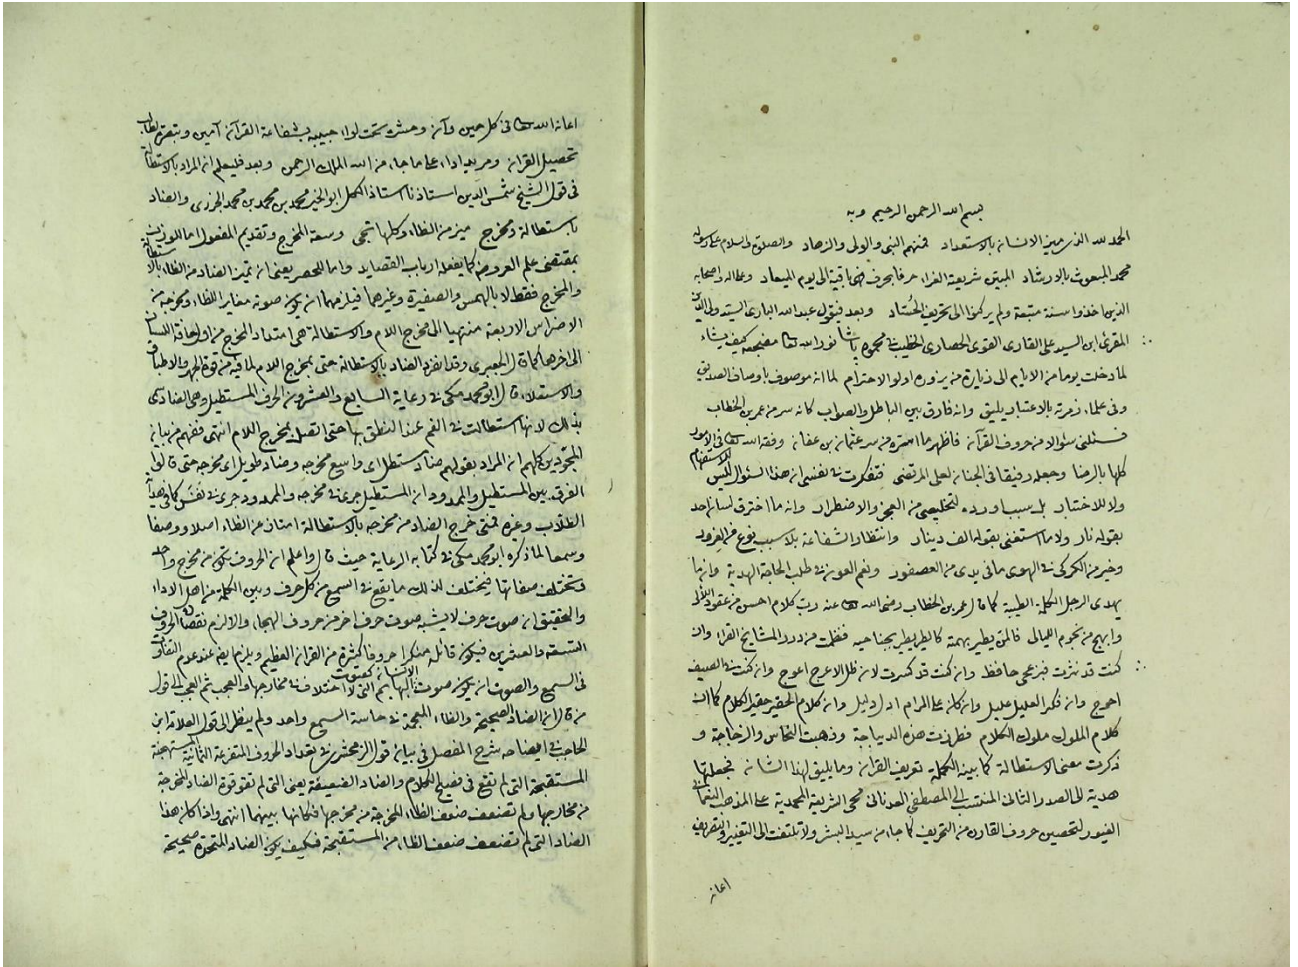 بسم الله الرحمن الرحيم وبه
الحمد لله الذي ميز الانسان بالاستعداد فمنهم النبي والولي والزهاد والصلوة والسلام على رسوله
محمد المبعوث بالارشاد المبين شريعة الغراء حرفا بحرف فهي باقية الى يوم الميعاد وعلى اله واصحابه
الذين اخذوا سنة متبعة ولم يركنوا الى تحريف الحساد وبعد فيقول عبد الله الباري السيد ولي الدين
المقرئ ابن السيد علي القاري القوي الحصاري الخطيب في محمود پاشا نور الله تعا مضجعه كيف يشاء
لما دخلت يوما من الايام الى زيارة من يزوره اولو الاحترام لما انه موصوف باوصاف الصديق
وفي علماء زمرته بالاعتبار يليق وانه فارق بين الباطل والصواب كانه سر من عمر بن الخطاب
فسئلني سئوالا من حروف القرآن فاظهر ما استره من سر عثمان بن عفان وفقه الله تعا في الامور
كلها بالرضا وجعله رفيقا في الجنان لعلي المرتضى فتفكرت في نفسي ان هذا السئوال ليس للاستفهام
ولا للاختبار بل سبب اورده لتخليصي من العجز والاضطرار وانه ما احترق لسان احد
بقوله نار ولا ما استغنى بقوله الف دينار وانتظار الشفاعة بلا سبب نوع من الغرور
وخير من الكركي في الهوى ما في يدي من العصفور ونعم العون في طلب الحاجة الهدية وانما
يهدي الرجل الكلمة الطيبة كما قال عمر بن الخطاب رضي الله تعا عنه رب كلام احسن من عقود اللآل
وابهج من نجوم الليالي فالمرء يطير بهمته كالطير يطير بجناحيه فنظمت من درر المشايخ القراء وان
كنت قد نثرت فبزعمي حافظ وانه كنت قد كسرت لانه ظل الاعرج اعوج وانه كنت في الصيف
احوج وانه فكر العليل عليل وانه كان على المرام ادل دليل وانه كلام الحقير حقير الكلام كما ان
كلام الملوك ملوك الكلام فطرزت هذه الديباجة وذهبت النحاس والزجاجة و
ذكرت معنى الاستطالة كما بينه الكملة لتعريف القرآن وما يليق لهذا الشان فجعلتها
هدية الى الصدر الثاني المنتسب الى المصطفى العدناني محي الشريعة المحمدية على المذهب النعماني
الغيور لتحصين حروف القارن من التحريف كما جاء من سيد البشر ولا تلتفت الى التغيير والتصريف
اعانه
اعانه الله تعا في كل حين وآن وحشره تحت لواء حبيبه بشفاعة القرآن آمين
تحصيل القران ومريد اداء على ما جاء من الله الملك الرحمن وبعد فليعلم ان المراد بالاستطالة
في قول الشيخ شمس الدين استاذنا استاذ الكل ابو الخير محمد بن محمد بن محمد الجزري والضاد
باستطالة ومخرج ميز من الظاء وكلها تجي وسعة المخرج وتقديم المفعول اما للوزن
بمقتضى علم العروض كما يفعله ارباب القصايد واما للحصر يعني ان تميز الضاد من الظاء بالاستطالة
والمخرج فقط لا بالهمس والصفيرة وغيرهما فيلزمها ان يكون صوته مغاير الظاء ومخرجه من
الاضراس الاربعة منتهيا الى مخرج اللام والاستطالة هي امتداد المخرج من اول حافة اللسان
الى اخرها كما قال الجعبري وقد انفرد الضاد بالاستطالة حتى بمخرج اللام لما فيه من قوة الجهر والاطباق
والاستعلاء قال ابو محمد مكي في رعاية السابع والعشرون الحرف المستطيل وهي الضاد سمي
بذلك لانها استطالت في الفم عند النطق بها حتى اتصل بمخرج اللام انتهى ففهم من بيانه
المجودين كلهم ان المراد بقولهم ضاد مستطل اي واسع مخرجه وضاد طويل اي مخرجه حتى قالوا
الفرق بين المستطيل والممدود ان المستطيل جرى في مخرجه والممدود جرى في نفس كما في هداية
الطلاب وغيره فمتى خرج الضاد من مخرجه بالاستطالة امتاز عن الظاء اصلا ووصفا
وسمعا لما ذكره ابو محمد مكي في كتابه الرعاية حيث قال واعلم ان الحروف تكون من مخرج واحد
وتختلف صفاتها فيختلف لذلك ما يقع في السمع من كل حرف وبين الكملة من اهل الاداء
والتحقيق ان صوت حرف لا يشبه صوت حرف اخر من حروف الهجاء والا لزم نقصان الحروف
التسعة والعشرين فيكون قائله منكرا حروفا كثيرة من القران العظيم ويلزم ايضا عند عدم التفاوت
في السمع والصوت ان يكون صوت الانسان كصوت البهايم التي لا اختلاف في مخارجها والعجب ثم العجب الى قول
من قال ان الضاد الصحيحة والظاء المعجمة في حاسة السمع واحد ولم ينظر الى قول العلامة ابن
الحاجب في ايضاحه شرح المفصل في بيان قول الزمخشري في تعداد الحروف المتفرعة الثمانية المستهجنة
المستقبحة التي لم تقع في فصيح الكلام والضاد الضعيفة يعني التي لم تقو قوة الضاد المخرجة
من مخارجها ولم تضعف ضعف الظاء المخرجة من مخرجها فكانها بينهما انتهى واذا كان هذا
الضاد التي لم تضعف ضعف الظاء من المستقبحة فكيف يكون الضاد المتحدة صحيحة